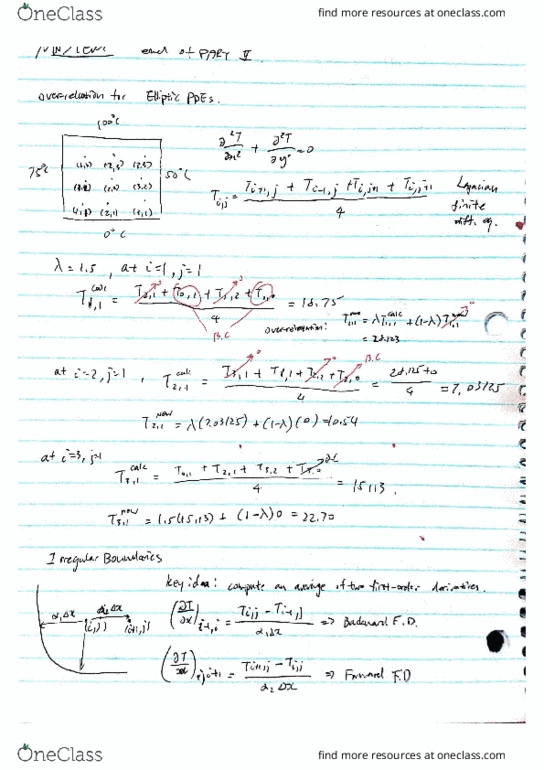 OneClass
find more resources at oneclass.com
end of PART II
Overrelaxation for Elliptic PDEs.
100°C
75°C
50°C
0°C
(1,3) (2,3) (3,3)
(1,2) (2,2) (3,2)
(1,1) (2,1) (3,1)
∂²T/∂x² + ∂²T/∂y² = 0
T_{i,j} = (T_{i+1,j} + T_{i-1,j} + T_{i,j+1} + T_{i,j-1}) / 4
Laplacian finite diff. eq.
λ = 1.5, at i=1, j=1
T_{1,1}^{calc} = (T_{2,1} + T_{0,1} + T_{1,2} + T_{1,0}) / 4 = 18.75
B.C
overrelaxation: T_{1,1}^{new} = λT_{1,1}^{calc} + (1-λ)T_{1,1}
= 28.125
at i=2, j=1, T_{2,1}^{calc} = (T_{3,1} + T_{1,1} + T_{2,2} + T_{2,0}) / 4 = (28.125+0) / 4 = 7.03125
B.C
T_{2,1}^{new} = λ(7.03125) + (1-λ)(0) = 10.54
at i=3, j=1
T_{3,1}^{calc} = (T_{4,1} + T_{2,1} + T_{3,2} + T_{3,0}) / 4 = 15.13.
T_{3,1}^{new} = 1.5(15.13) + (1-λ)0 = 22.70
Irregular Boundaries
key idea: compute an average of two first-order derivatives.
α₁Δx
α₂Δx
(i,j)
(i+1,j)
(∂T/∂x)_{i-1,i} = (T_{i,j} - T_{i-1,j}) / α₁Δx ⇒ Backward F.D.
(∂T/∂x)_{i,i+1} = (T_{i+1,j} - T_{i,j}) / α₂Δx ⇒ Forward F.D
OneClass
find more resources at oneclass.com